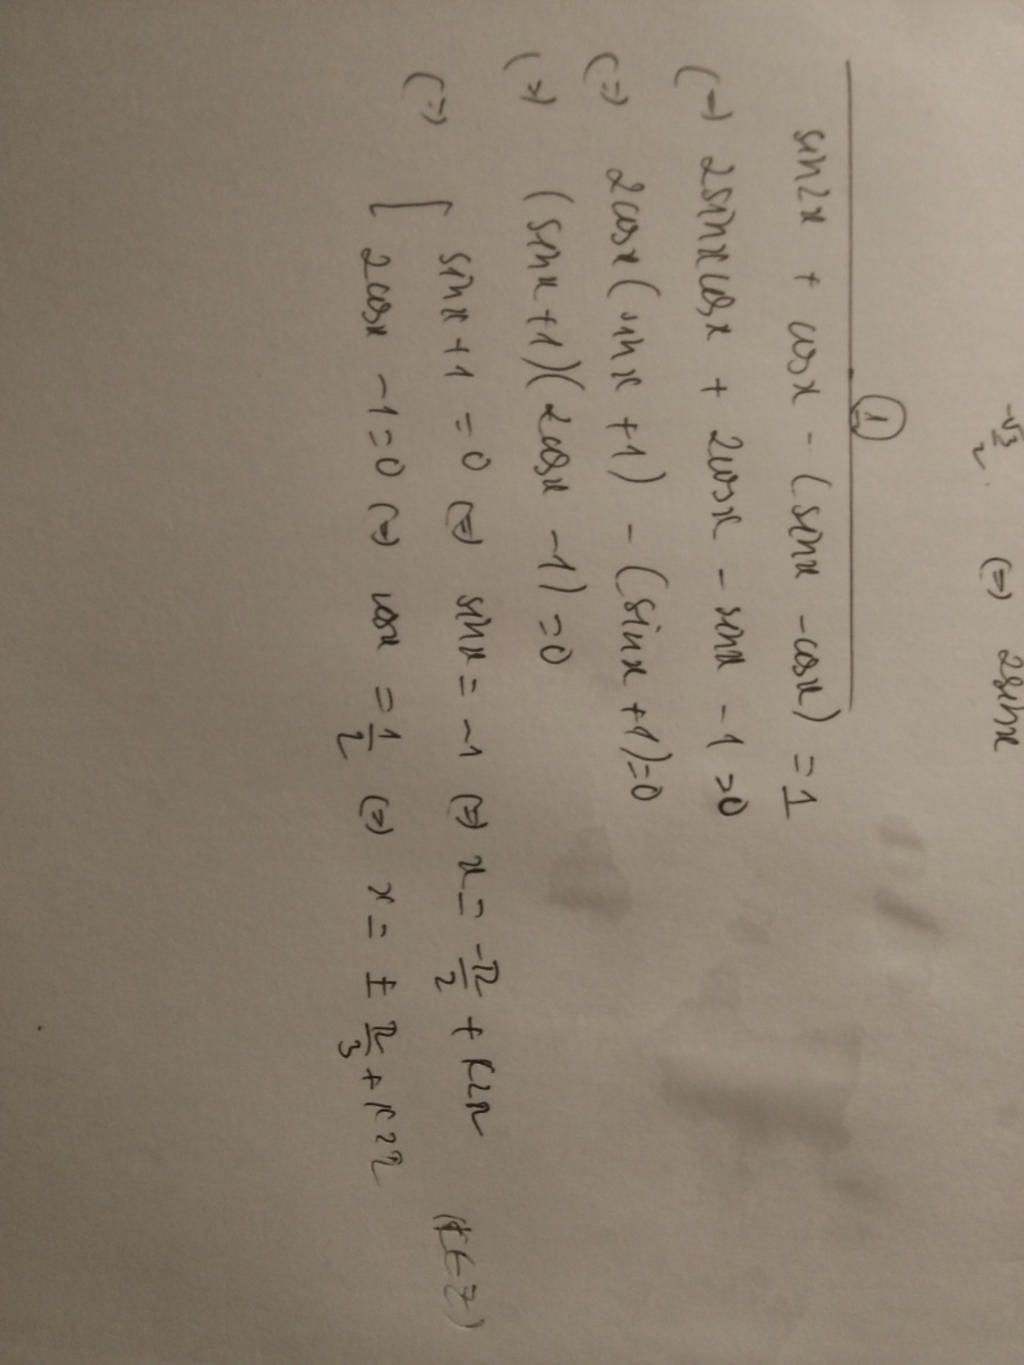 -√3/2 (=) 2sinx
①
sin2x + cosx - (sinx - cosx) = 1
(=) 2sinxcosx + 2cosx - sinx - 1 = 0
(=) 2cosx(sinx + 1) - (sinx + 1) = 0
(=) (sinx + 1)(2cosx - 1) = 0
(=) [ sinx + 1 = 0 (=) sinx = -1 (=) x = -π/2 + k2π
2cosx - 1 = 0 (=) cosx = 1/2 (=) x = ± π/3 + k2π (k∈Z)